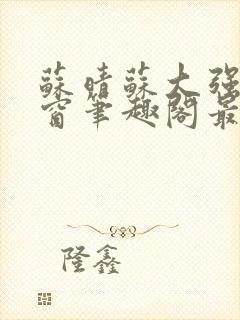 蘇晴蘇大強
窗筆趣閣最
隆鑫